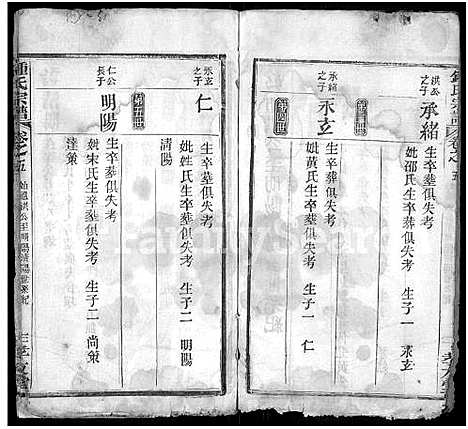 洪公之子
承緒
生卒葬俱失考
妣邵氏生卒葬俱失考 生子一 永玄
第四世
承緒之子
永玄
生卒葬俱失考
妣黃氏生卒葬俱失考 生子一 仁
永玄之子
仁
生卒葬俱失考
妣姓氏生卒葬俱失考 生子二 明陽
清陽
第五世
仁公長子
明陽
生卒葬俱失考
妣宋氏生卒葬俱失考 生子二 尚策
達策
鍾氏宗譜
卷之五